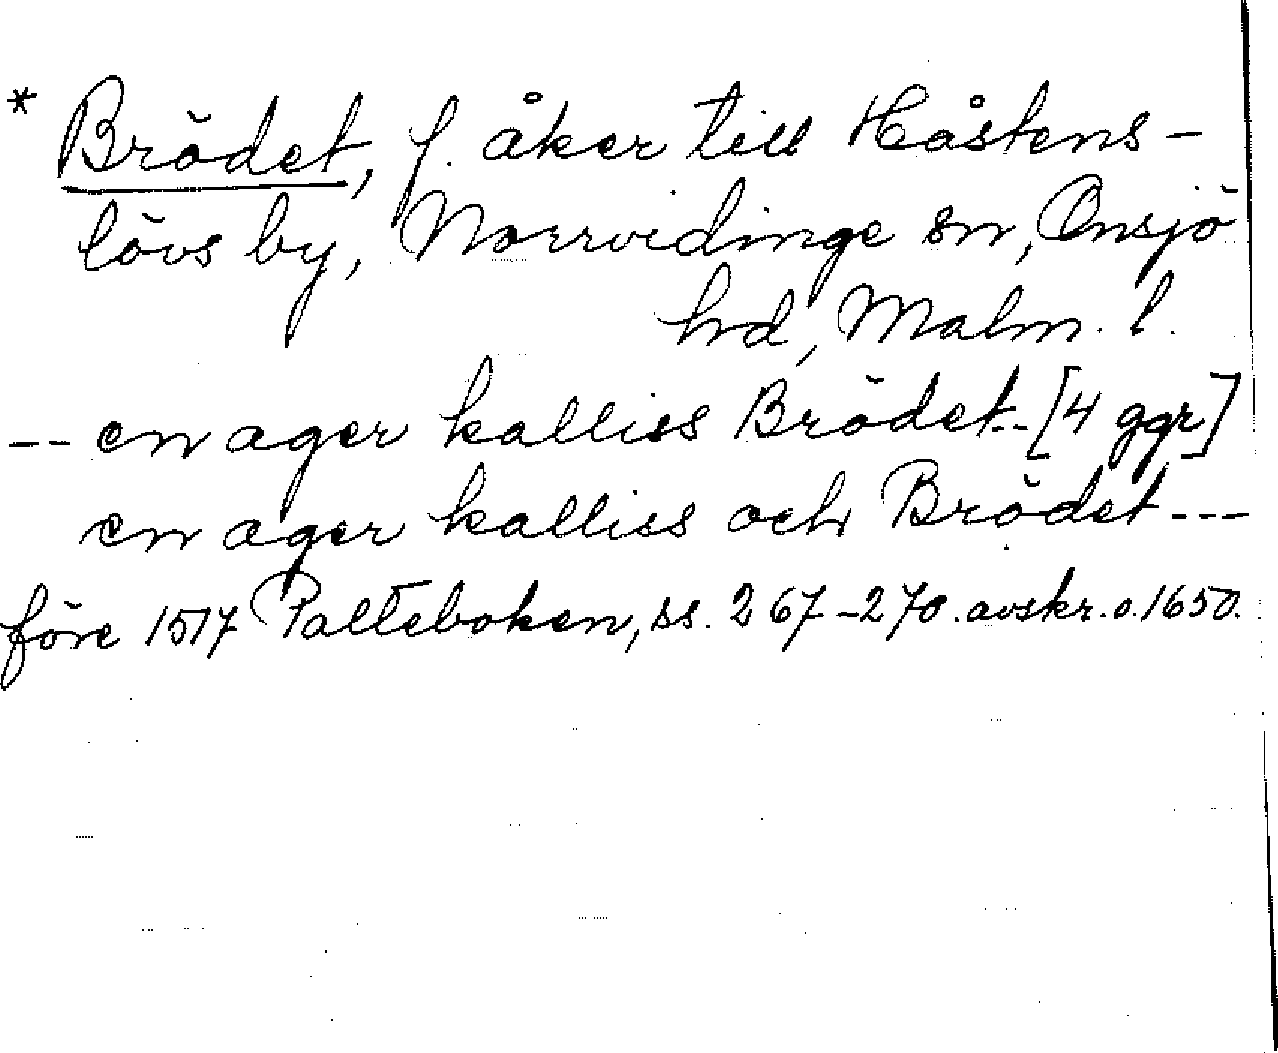 * Brödet, f. åker till Håstens-
lövs by, Norrvidinge sn, Onsjö
hd, Malm. l.
-- en ager kalliss Brödet -- [4 ggr]
en ager kalliss och Brödet ---
före 1517 Palteboken, ss. 267-270. avskr. o. 1650.